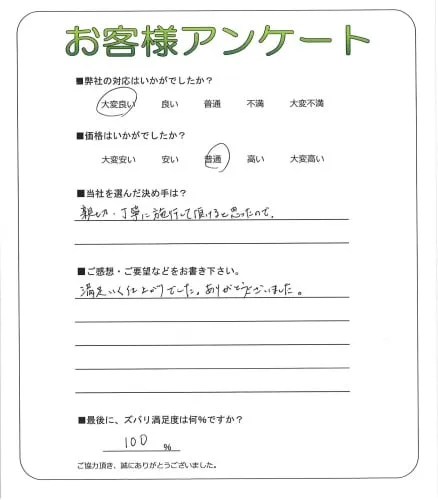 お客様アンケート
■弊社の対応はいかがでしたか？
大変良い 良い 普通 不満 大変不満
■価格はいかがでしたか？
大変安い 安い 普通 高い 大変高い
■当社を選んだ決め手は？
親切・丁寧に施行して頂けると思ったので。
■ご感想・ご要望などをお書き下さい。
満足いく仕上がりでした。ありがとうございました。
■最後に、ズバリ満足度は何％ですか？
100 ％
ご協力頂き、誠にありがとうございました。